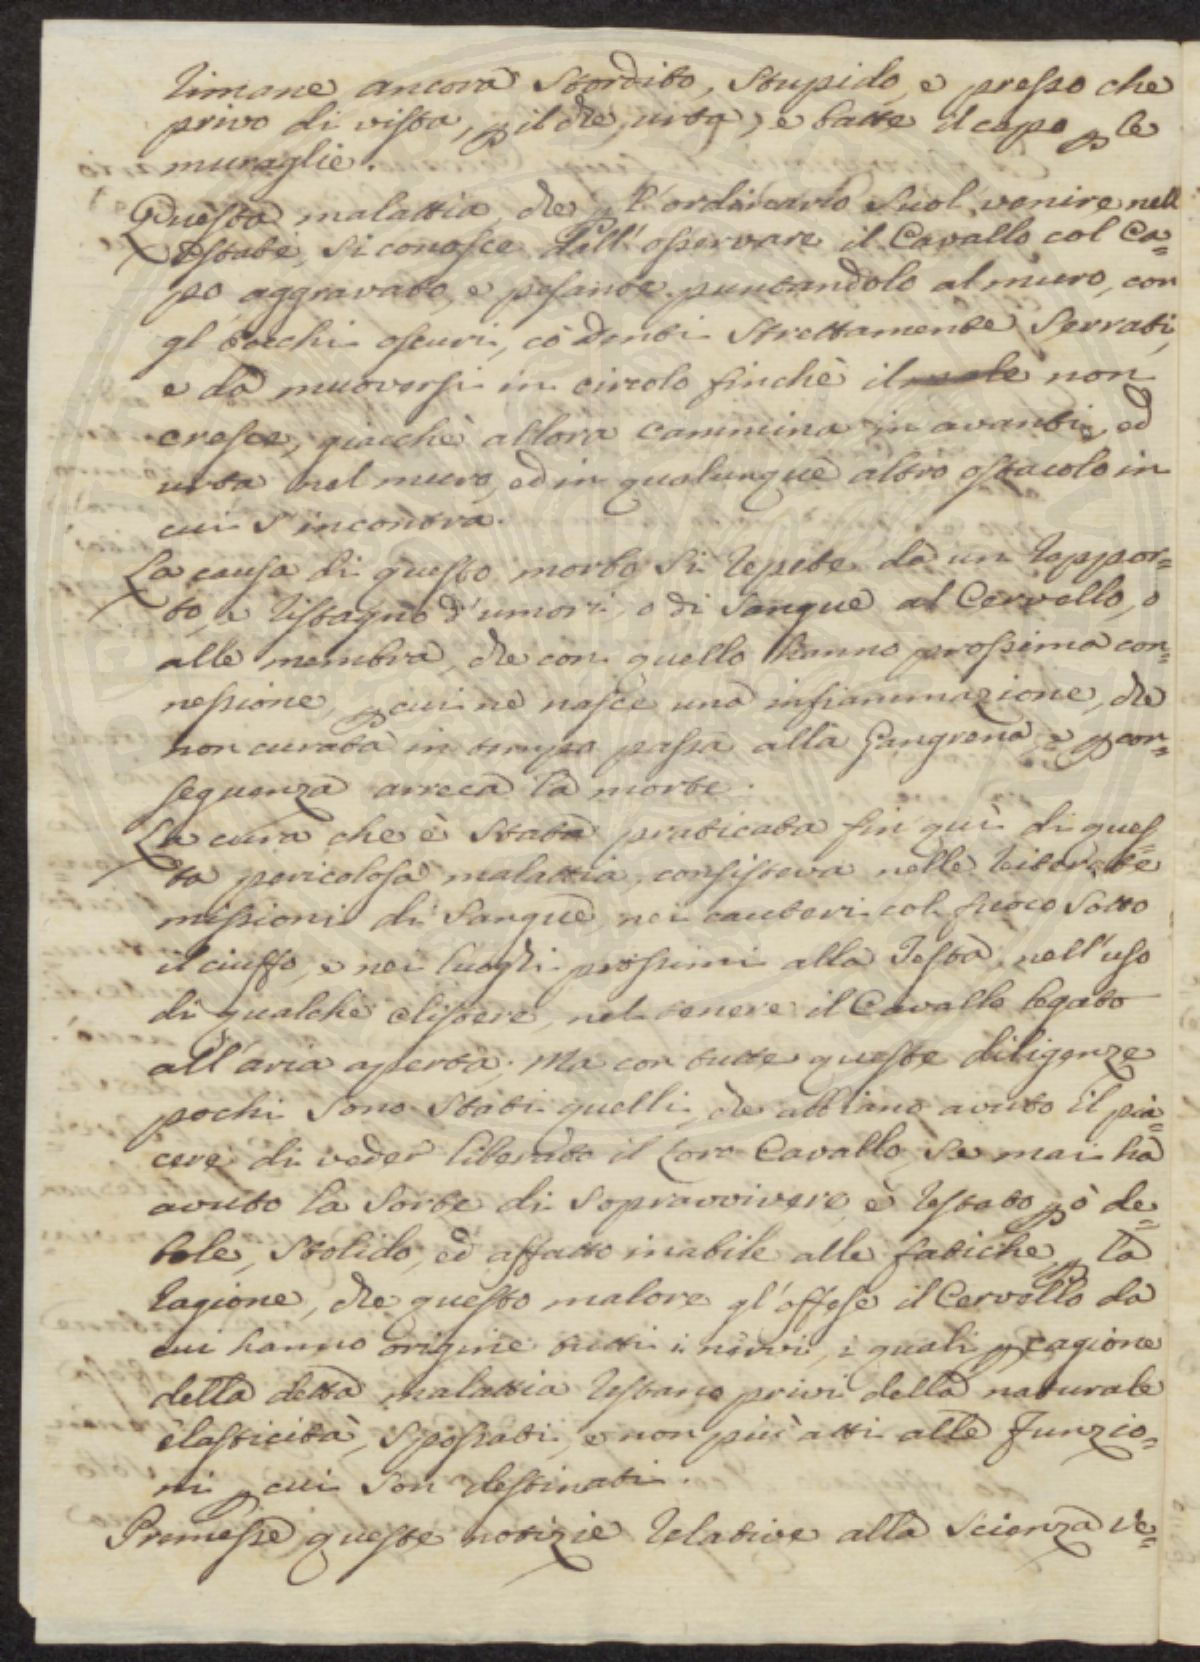 rimane ancora stordito, stupido, e presso che
privo di vista, p il che urta, e batte il capo p le
muraglie.
Questa malattia, che p l'ordinario suol venire nell'
Estate, si conosce dall'osservare il Cavallo col Ca=
po aggravato, e pesante puntandolo al muro, con
gl'occhi oscuri, co denti strettamente serrati,
e dà muoversi in circolo finchè il male non
cresce, giacchè allora cammina in avanti, ed
urta nel muro, ed in qualunque altro ostacolo in
cui s'incontra.
La causa di questo morbo si repete dà un rappor=
to, e ristagno d'umori, o di sangue al Cervello, o
alle membra, che con quello hanno prossima con=
nessione, p cui ne nasce una infiammazione, che
non curata in tempo passa alla Gangrena, e p con=
seguenza arreca la morte.
La cura che è stata praticata fin quì di ques=
ta pericolosa malattia, consisteva nelle reiterate
missioni di sangue, nei cauteri col fuoco sotto
il ciuffo, e nei luoghi prossimi alla Testa, nell'uso
di qualche clistere, nel tenere il Cavallo legato
all'aria aperta; Ma con tutte queste diligenze
pochi sono stati quelli, che abbiano avuto il pia=
cere di veder liberato il loro Cavallo, se mai hà
avuto la sorte di sopravvivere, è restato pò de=
bole, stolido, ed affatto inabile alle fatiche, p la
ragione, che questo malore gl'offese il Cervello da
cui hanno origine tutti i nervi, i quali p cagione
della detta malattia restano privi della naturale
elasticità, spossati, e non più atti alle funzio=
ni p cui son destinati.
Premesse queste notizie relative alla scienza Ve=